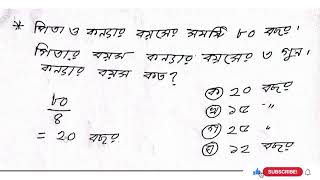 * পিতা ও কন্যার বয়সের সমষ্টি ৮০ বছর।
পিতার বয়স কন্যার বয়সের ৩ গুন।
কন্যার বয়স কত?
৮০
৪
= 20 বছর
ক) 20 বছর
খ) ১৫ "
গ) 25 "
ঘ) ১2 বছর
SUBSCRIBE!